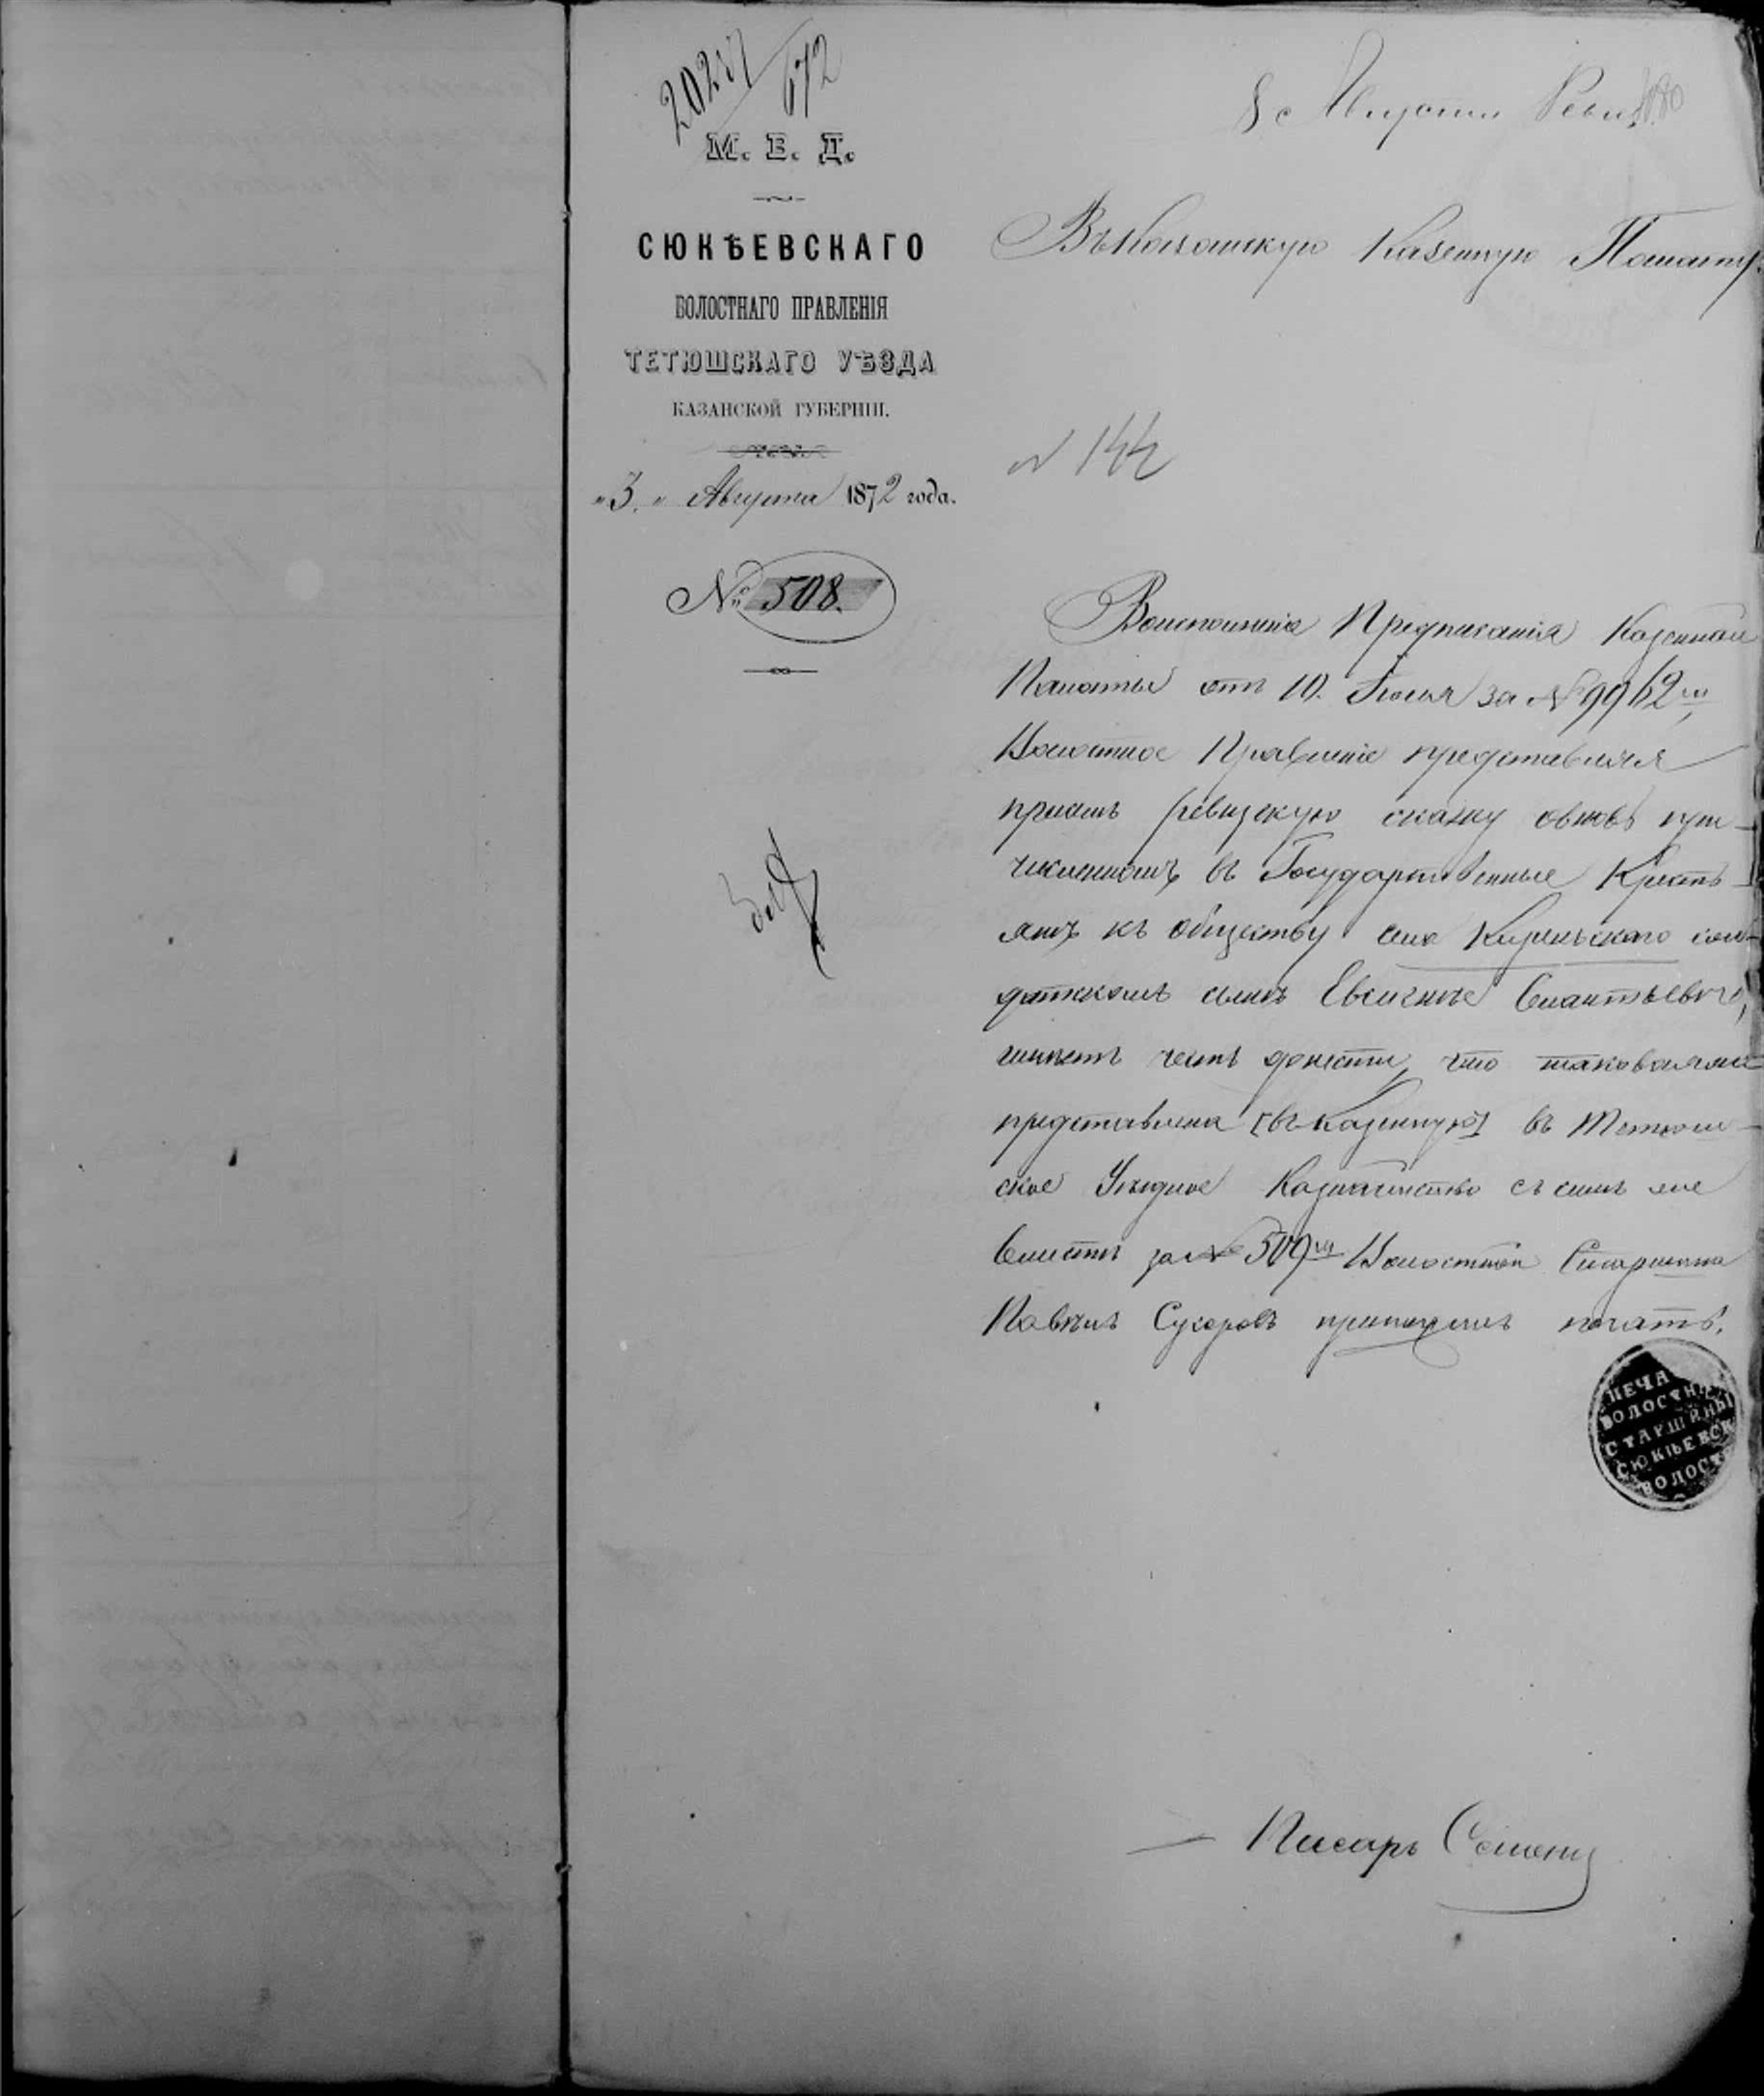 М. В. Д.
СЮКѢЕВСКАГО
ВОЛОСТНАГО ПРАВЛЕНІЯ
ТЕТЮШСКАГО УѢЗДА
КАЗАНСКОЙ ГУБЕРНІИ.
„3.„ Августа 1872 года.
№ 508.
8 Августа
Въ Казанскую Казенную Палату
№ 144
Воисполненіе Предписанія Казенной
Палаты отъ 10. Іюля за № 9962
Волостное Правленіе представляя
присемъ ревизскую сказку овновь при-
численномъ въ Государственные Крестъ-
янъ къ обществу села сол-
датскомъ сынѣ
имѣетъ честь донести, что таковая
представлена [въ Казенную] въ Тетюш-
ское Уѣздное Казначейство съ симъ же
вмѣстѣ за № 509 Волостной Старшина
Павелъ Сухоровъ приложилъ печать.
ПЕЧА
ВОЛОСТН
СТАРШИНЫ
СЮКѢЕВСК
ВОЛОСТ
Писарь